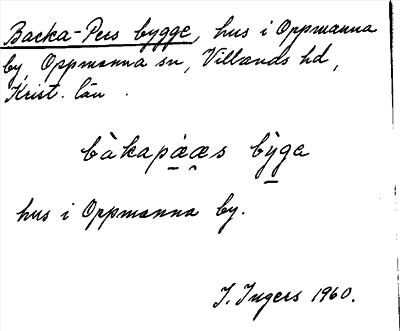 Backa-Pers bygge, hus i Oppmanna
by, Oppmanna sn, Villands hd,
Krist. län.
bàkapä̀æs bỳga
hus i Oppmanna by.
I. Ingers 1960.